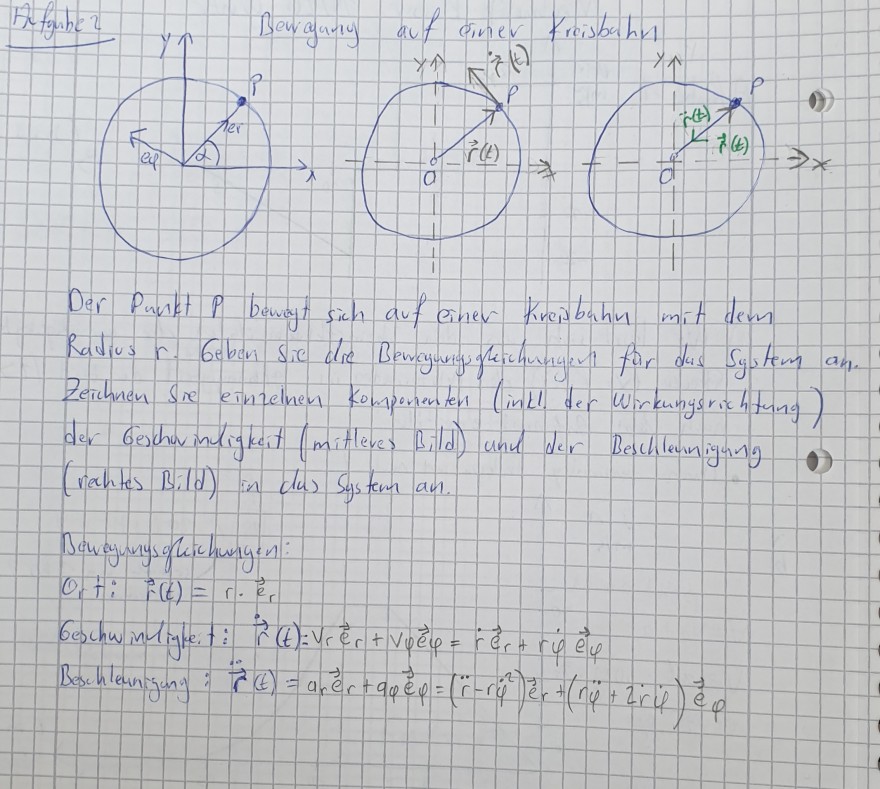 Aufgabe 2
Bewegung auf einer Kreisbahn
y P er eφ α x
y ṙ⃗(t) P r⃗(t) O x
y P r̈(t) r⃗(t) O x
Der Punkt P bewegt sich auf einer Kreisbahn mit dem
Radius r. Geben Sie die Bewegungsgleichungen für das System an.
Zeichnen Sie einzelnen Komponenten (inkl. der Wirkungsrichtung)
der Geschwindigkeit (mitleres Bild) und der Beschleunigung
(rechtes Bild) in das System an.
Bewegungsgleichungen:
Ort: r⃗(t) = r · e⃗r
Geschwindigkeit: ṙ⃗(t) = vr e⃗r + vφ e⃗φ = ṙ e⃗r + rφ̇ e⃗φ
Beschleunigung: r̈⃗(t) = ar e⃗r + aφ e⃗φ = (r̈ - rφ̇²) e⃗r + (rφ̈ + 2ṙφ̇) e⃗φ